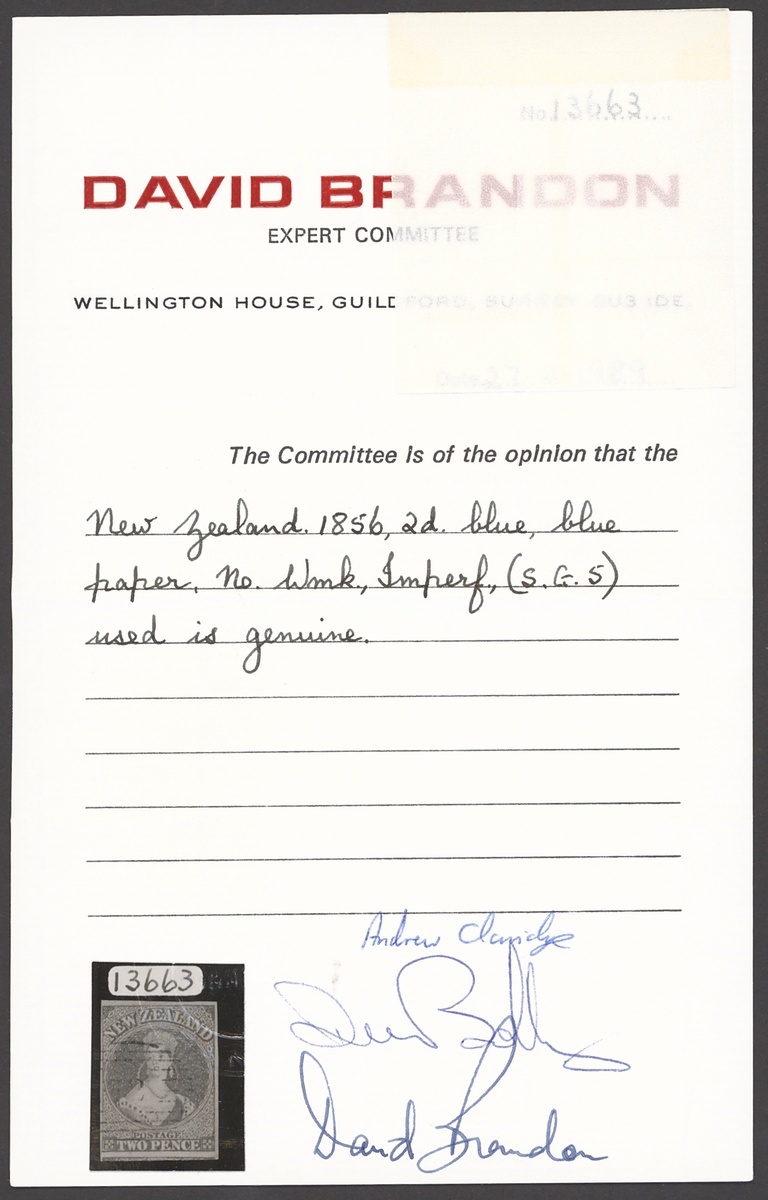 No. 13663
DAVID BRANDON
EXPERT COMMITTEE
WELLINGTON HOUSE, GUILDFORD, SURREY GU3 1DE
Date 27
The Committee is of the opinion that the
New Zealand. 1856, 2d. blue, blue
paper, No. Wmk., Imperf., (S.G.5)
used is genuine.
Andrew Claridge
David Brandon
13663
NEW ZEALAND
POSTAGE
TWO PENCE